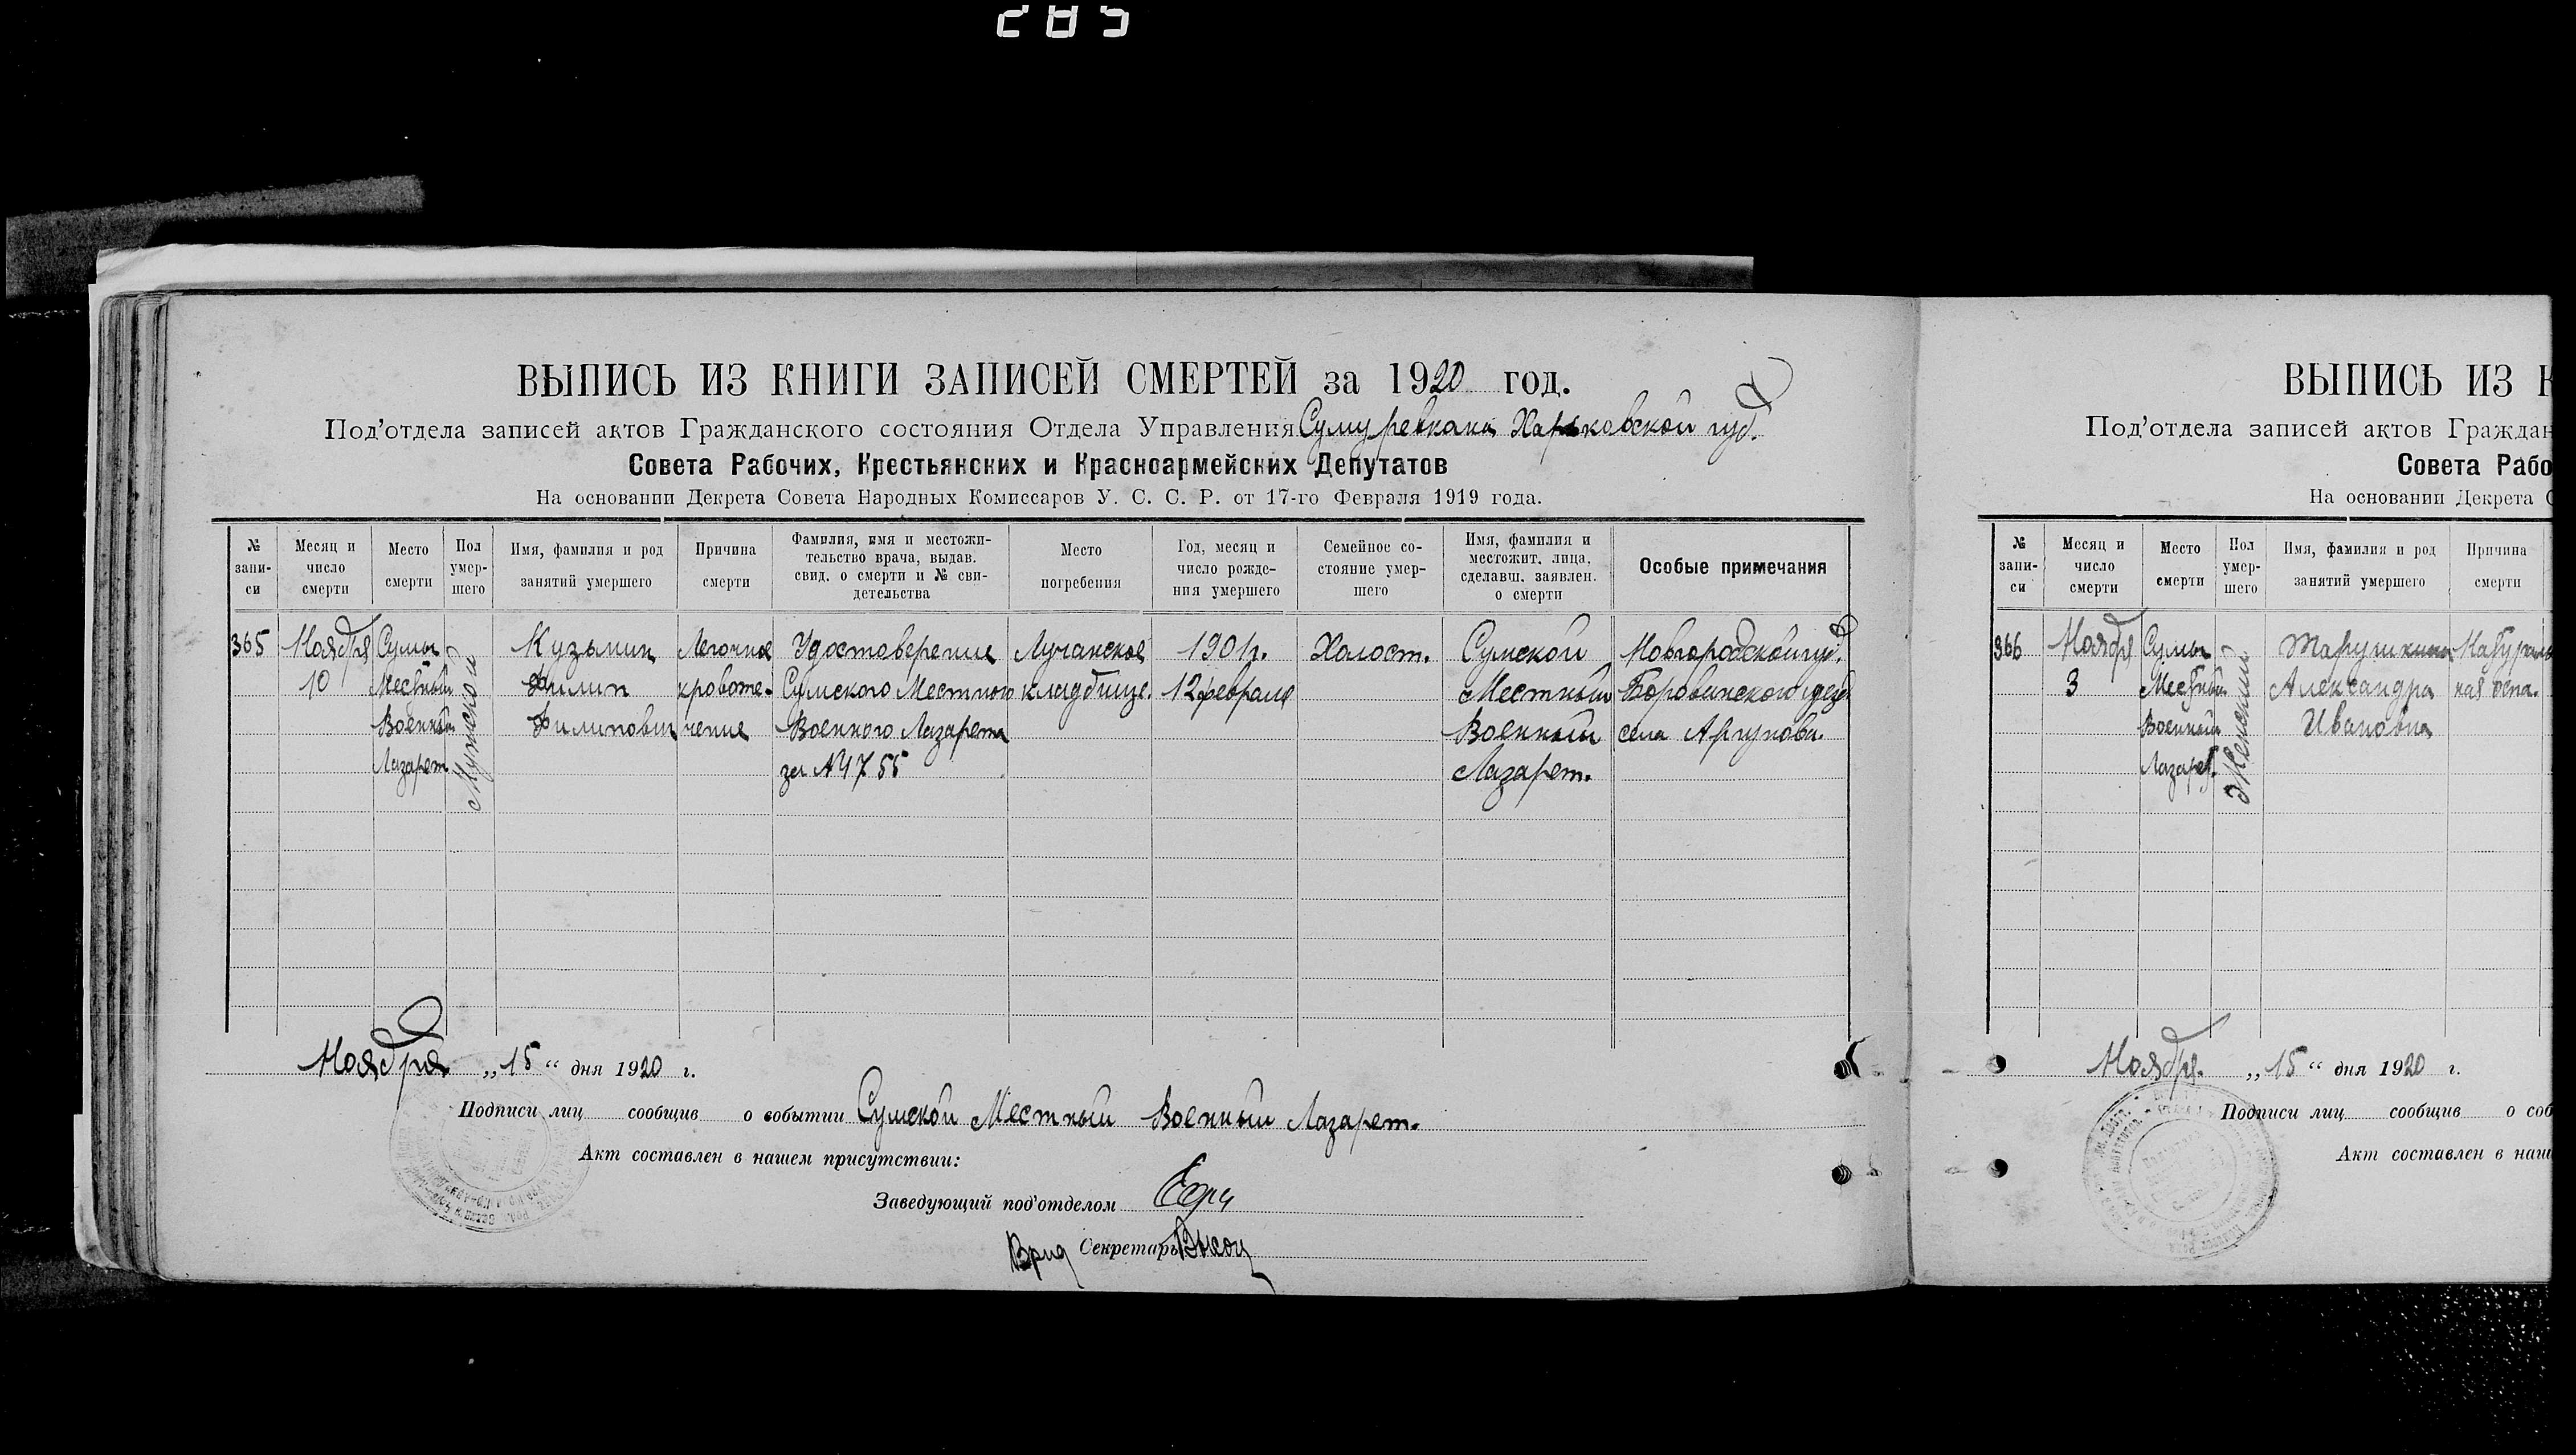 285
ВЫПИСЬ ИЗ КНИГИ ЗАПИСЕЙ СМЕРТЕЙ за 1920 год.
Под'отдела записей актов Гражданского состояния Отдела Управления Сумуревкана Харьковской губ.
Совета Рабочих, Крестьянских и Красноармейских Депутатов
На основании Декрета Совета Народных Комиссаров У. С. С. Р. от 17-го Февраля 1919 года.
№ запи- си
Месяц и число смерти
Место смерти
Пол умер- шего
Имя, фамилия и род занятий умершего
Причина смерти
Фамилия, имя и местожи- тельство врача, выдав. свид. о смерти и № сви- детельства
Место погребения
Год, месяц и число рожде- ния умершего
Семейное со- стояние умер- шего
Имя, фамилия и местожит. лица, сделавш. заявлен. о смерти
Особые примечания
365
Ноября
10
Сумы
Местный
Военный
Лазарет
Мужской
Кузьмин
Филип
Филипович
Легочное
кровоте-
чение
Удостоверение
Сумского Местного
Военного Лазарета
за №4755
Лучанское
кладбище.
1901г.
12 февраля
Холост.
Сумской
Местный
Военный
Лазарет.
Новгородской губ.
села Аргунова.
Ноября „15“ дня 1920 г.
Подписи лиц сообщив о событии Сумской Местный Военный Лазарет.
Акт составлен в нашем присутствии:
Заведующий под'отделом
Врид Секретарь
ВЫПИСЬ ИЗ К
Под'отдела записей актов Граждан
Совета Рабо
На основании Декрета С
№ запи- си
Месяц и число смерти
Место смерти
Пол умер- шего
Имя, фамилия и род занятий умершего
Причина смерти
366
Ноября
3
Сумы
Местный
Военный
Лазарет.
Женский
Александра
Ивановна
Натураль
ная оспа.
Ноября. „15“ дня 1920 г.
Подписи лиц сообщив о соб
Акт составлен в наш